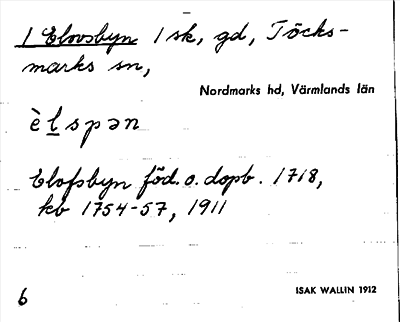 1 Elovsbyn 1 sk, gd, Töcks-
marks sn,
Nordmarks hd, Värmlands län
è l s p ə n
Elofsbyn föd. o. dopb. 1718,
kb 1754-57, 1911
6
ISAK WALLIN 1912